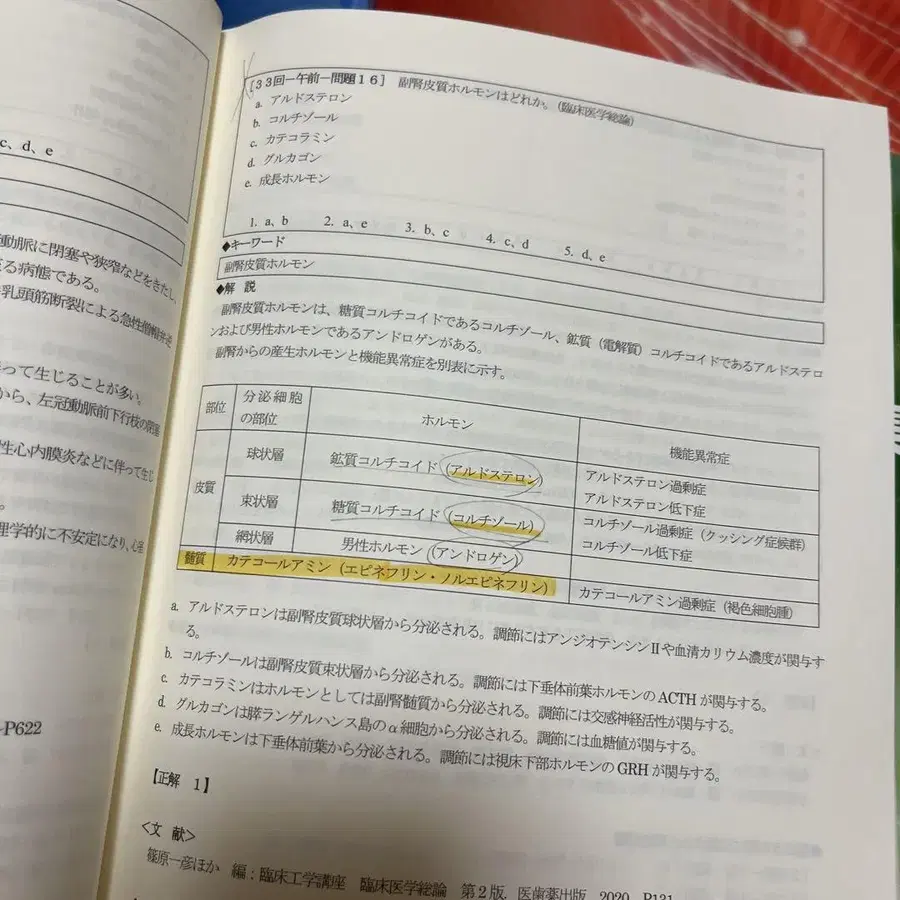 c、d、e
動脈に閉塞や狭窄などをきたし、
る病態である。
乳頭筋断裂による急性僧帽弁逆
って生じることが多い。
から、左冠動脈前下行枝の閉塞
性心内膜炎などに伴って生じ
。
理学的に不安定になり、心室
-P622
[33回－午前－問題16] 副腎皮質ホルモンはどれか。(臨床医学総論)
a. アルドステロン
b. コルチゾール
c. カテコラミン
d. グルカゴン
e. 成長ホルモン
1. a、b 2. a、e 3. b、c 4. c、d 5. d、e
◆キーワード
副腎皮質ホルモン
◆解 説
副腎皮質ホルモンは、糖質コルチコイドであるコルチゾール、鉱質（電解質）コルチコイドであるアルドステロ
ンおよび男性ホルモンであるアンドロゲンがある。
副腎からの産生ホルモンと機能異常症を別表に示す。
部位 分泌細胞の部位 ホルモン 機能異常症
皮質 球状層 鉱質コルチコイド（アルドステロン） アルドステロン過剰症
アルドステロン低下症
束状層 糖質コルチコイド（コルチゾール） コルチゾール過剰症（クッシング症候群）
コルチゾール低下症
網状層 男性ホルモン（アンドロゲン）
髄質 カテコールアミン（エピネフリン・ノルエピネフリン） カテコールアミン過剰症（褐色細胞腫）
a. アルドステロンは副腎皮質球状層から分泌される。調節にはアンジオテンシンⅡや血清カリウム濃度が関与す
る。
b. コルチゾールは副腎皮質束状層から分泌される。調節には下垂体前葉ホルモンのACTHが関与する。
c. カテコラミンはホルモンとしては副腎髄質から分泌される。調節には交感神経活性が関与する。
d. グルカゴンは膵ランゲルハンス島のα細胞から分泌される。調節には血糖値が関与する。
e. 成長ホルモンは下垂体前葉から分泌される。調節には視床下部ホルモンのGRHが関与する。
【正解 1】
<文 献>
篠原一彦ほか 編：臨床工学講座 臨床医学総論 第2版. 医歯薬出版. 2020. P131